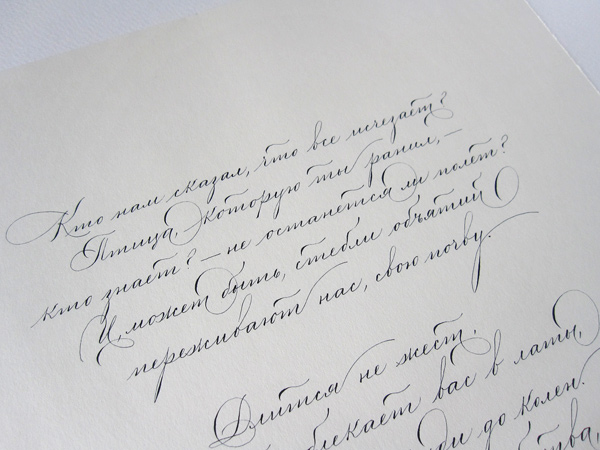 Кто нам сказал, что все исчезает?
Птица, которую ты ранил, —
кто знает? — не останется ли полет?
И, может быть, стебли объятий
переживают нас, свою почву.
Длится не жест,
вас в латы,
до колен.